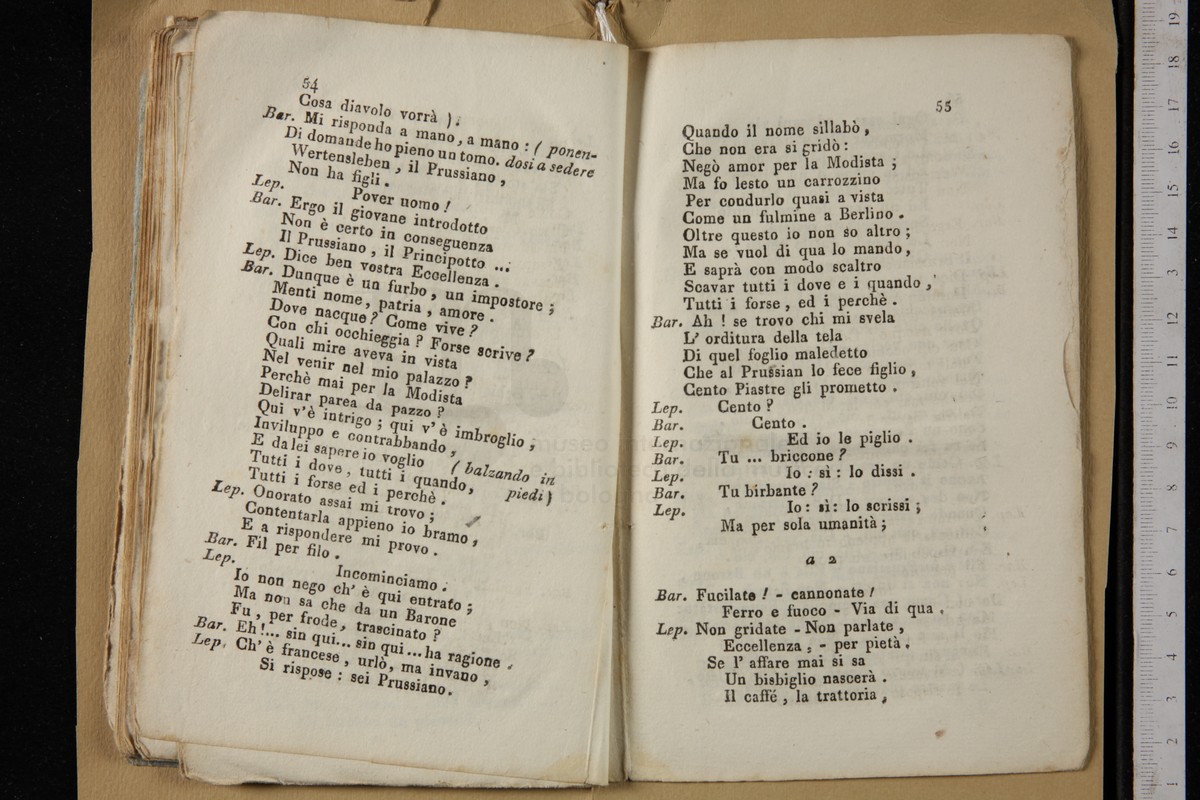 54
Cosa diavolo vorrà ).
Bar. Mi risponda a mano, a mano : ( ponen-
Di domande ho pieno un tomo. dosi a sedere
Wertensleben, il Prussiano,
Non ha figli.
Lep. Pover uomo !
Bar. Ergo il giovane introdotto
Non è certo in conseguenza
Il Prussiano, il Principotto ...
Lep. Dice ben vostra Eccellenza.
Bar. Dunque è un furbo, un impostore ;
Menti nome, patria, amore.
Dove nacque? Come vive ?
Con chi occhieggia ? Forse scrive ?
Quali mire aveva in vista
Nel venir nel mio palazzo ?
Perchè mai per la Modista
Delirar parea da pazzo ?
Qui v'è intrigo ; qui v'è imbroglio,
Inviluppo e contrabbando,
E da lei sapere io voglio ( balzando in
Tutti i dove, tutti i quando, piedi)
Tutti i forse ed i perchè.
Lep. Onorato assai mi trovo ;
Contentarla appieno io bramo,
E a rispondere mi provo.
Bar. Fil per filo.
Lep. Incominciamo.
Io non nego ch' è qui entrato ;
Ma non sa che da un Barone
Fu, per frode, trascinato ?
Bar. Eh !... sin qui... sin qui... ha ragione.
Lep. Ch' è francese, urlò, ma invano,
Si rispose : sei Prussiano.
55
Quando il nome sillabò,
Che non era si gridò :
Negò amor per la Modista ;
Ma fo lesto un carrozzino
Per condurlo quasi a vista
Come un fulmine a Berlino.
Oltre questo io non so altro ;
Ma se vuol di qua lo mando,
E saprà con modo scaltro
Scavar tutti i dove e i quando,
Tutti i forse, ed i perchè.
Bar. Ah ! se trovo chi mi svela
L' orditura della tela
Di quel foglio maledetto
Che al Prussian lo fece figlio,
Cento Piastre gli prometto.
Lep. Cento ?
Bar. Cento.
Lep. Ed io le piglio.
Bar. Tu ... briccone ?
Lep. Io : sì : lo dissi.
Bar. Tu birbante ?
Lep. Io : sì : lo scrissi ;
Ma per sola umanità ;
a 2
Bar. Fucilate ! - cannonate !
Ferro e fuoco - Via di qua.
Lep. Non gridate - Non parlate,
Eccellenza, - per pietà.
Se l' affare mai si sa
Un bisbiglio nascerà.
Il caffé, la trattoria,